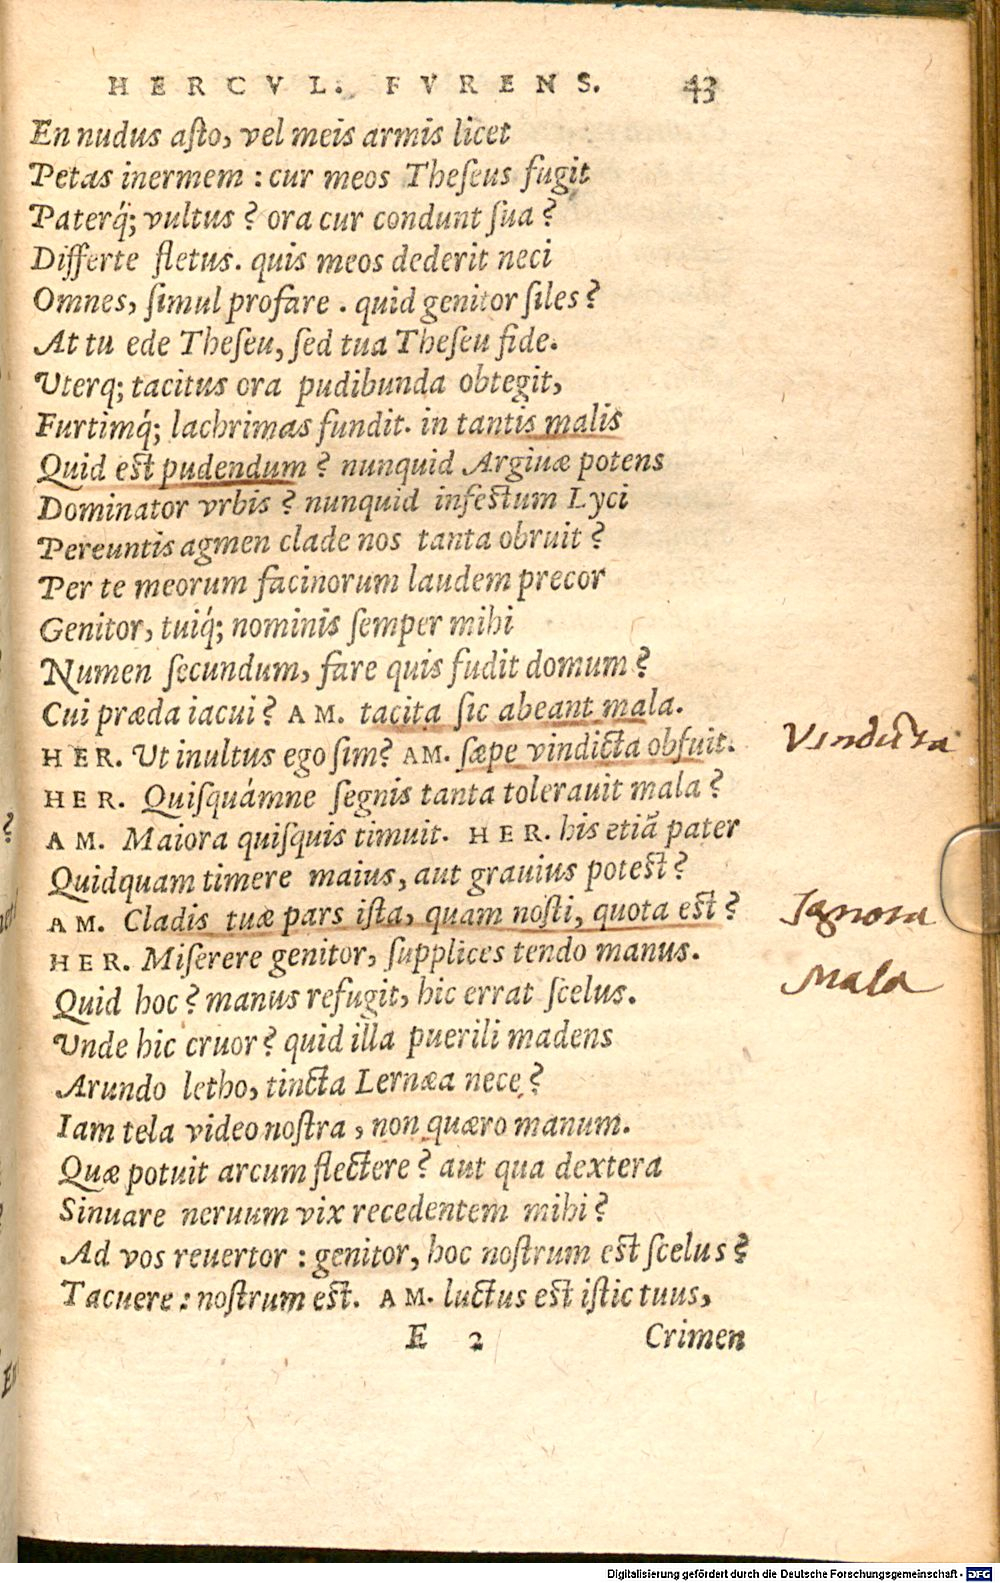 HERCVL. FVRENS. 43
En nudus aſto, vel meis armis licet
Petas inermem : cur meos Theſeus fugit
Paterq́; vultus ? ora cur condunt ſua ?
Differte fletus. quis meos dederit neci
Omnes, ſimul profare . quid genitor ſiles ?
At tu ede Theſeu, ſed tua Theſeu fide.
Uterq; tacitus ora pudibunda obtegit,
Furtimq́; lachrimas fundit. in tantis malis
Quid est pudendum ? nunquid Argiuæ potens
Dominator vrbis ? nunquid infestum Lyci
Pereuntis agmen clade nos tanta obruit ?
Per te meorum facinorum laudem precor
Genitor, tuiq́; nominis ſemper mihi
Numen ſecundum, fare quis fudit domum ?
Cui præda iacui ? AM. tacita ſic abeant mala.
HER. Ut inultus ego ſim? AM. ſæpe vindicta obfuit.
Vindicta
HER. Quiſquámne ſegnis tanta tolerauit mala ?
AM. Maiora quiſquis timuit. HER. his etiā pater
Quidquam timere maius, aut grauius potest ?
AM. Cladis tuæ pars iſta, quam noſti, quota est ?
Ignota
HER. Miſerere genitor, ſupplices tendo manus.
Mala
Quid hoc ? manus refugit, hic errat ſcelus.
Unde hic cruor ? quid illa puerili madens
Arundo letho, tincta Lernæa nece ?
Iam tela video noſtra , non quæro manum.
Quæ potuit arcum flectere ? aut qua dextera
Sinuare neruum vix recedentem mihi ?
Ad vos reuertor : genitor, hoc noſtrum est ſcelus ?
Tacuere : noſtrum est. AM. luctus est iſtic tuus,
E 2 Crimen
Digitalisierung gefördert durch die Deutsche Forschungsgemeinschaft - DFG